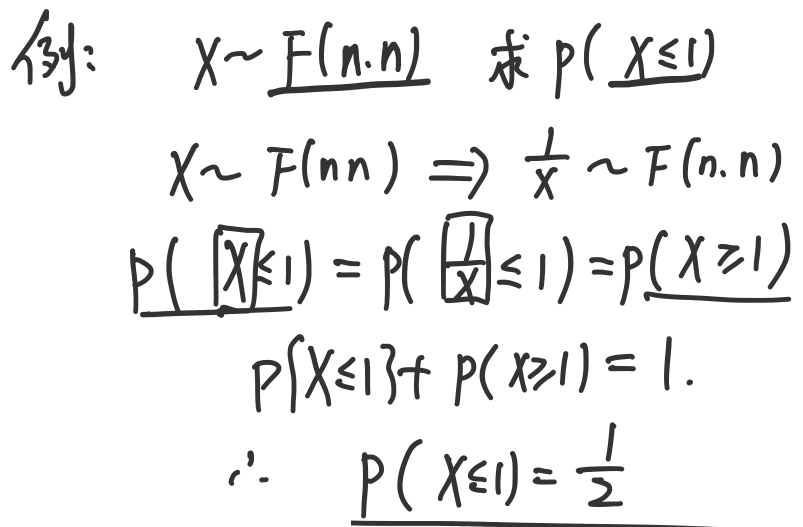 例: X ~ F(n.n) 求 p(X≤1)
X ~ F(n n) ⇒ 1/X ~ F(n.n)
p(X≤1) = p(1/X ≤ 1) = p(X≥1)
p{X≤1}+ p(X≥1) = 1.
∴ p(X≤1) = 1/2